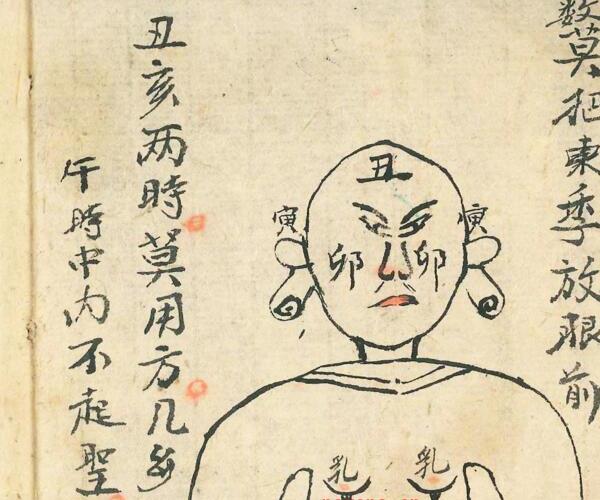 数莫把东季放眼前
丑
寅
寅
卯
卯
乳
乳
丑亥两時莫用方几
午時中内不起聖